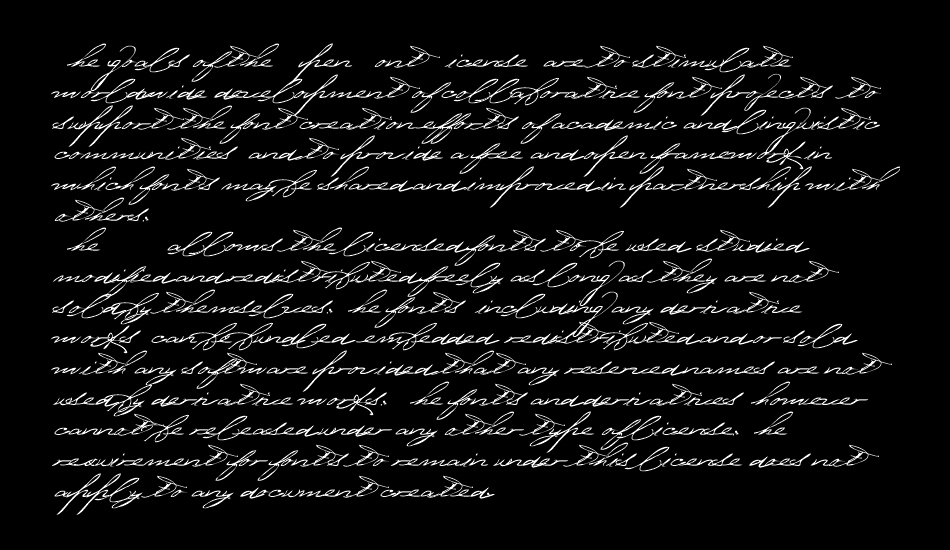 he goals of the pen ont icense are to stimulate
worldwide development of collaborative font projects to
support the font creation efforts of academic and linguistic
communities and to provide a free and open framework in
which fonts may be shared and improved in partnership with
others.
he allows the licensed fonts to be used studied
modified and redistributed freely as long as they are not
sold by themselves. he fonts including any derivative
works can be bundled embedded redistributed and or sold
with any software provided that any reserved names are not
used by derivative works. he fonts and derivatives however
cannot be released under any other type of license. he
requirement for fonts to remain under this license does not
apply to any document created